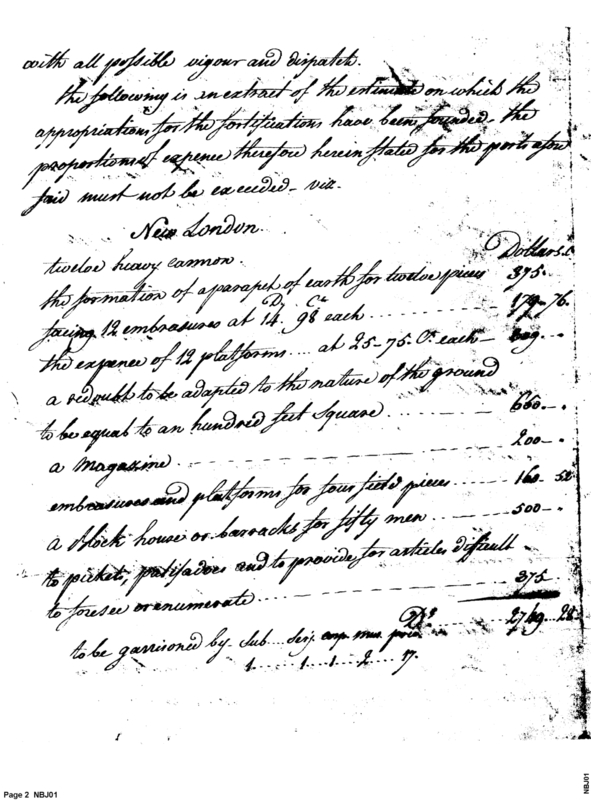 with all possible vigour and dispatch.
the following is an extract of the estimate on which the
appropriations for the fortifications have been founded - the
proportions of expence therefore herein stated for the ports afore
said must not be exceeded - viz.
New London.
Dollars. C
twelve heavy cannon.
the formation of a parapet of earth for twelve pieces 375.
Ds Cts
facing 12 embrasures at 14. 98 each .......... 179-76.
the expence of 12 platforms .... at 25-75 Cs. each - 309 - .
a redoubt to be adapted to the nature of the ground
to be equal to an hundred feet square .......... 660 - .
a magazine .......... 200 - .
embrasures and platforms for four field pieces ...... 160 - 52
a block house or barracks for fifty men ...... 500 - .
to pickets, palisadoes and to provide for articles difficult
to foresee or enumerate .......... 375
Ds .......... 2759.. 28.
to be garrisoned by - Sub.... Serj. corp mus. priv.
1.....1...1...2...17.
Page 2 NBJ01
NBJ01